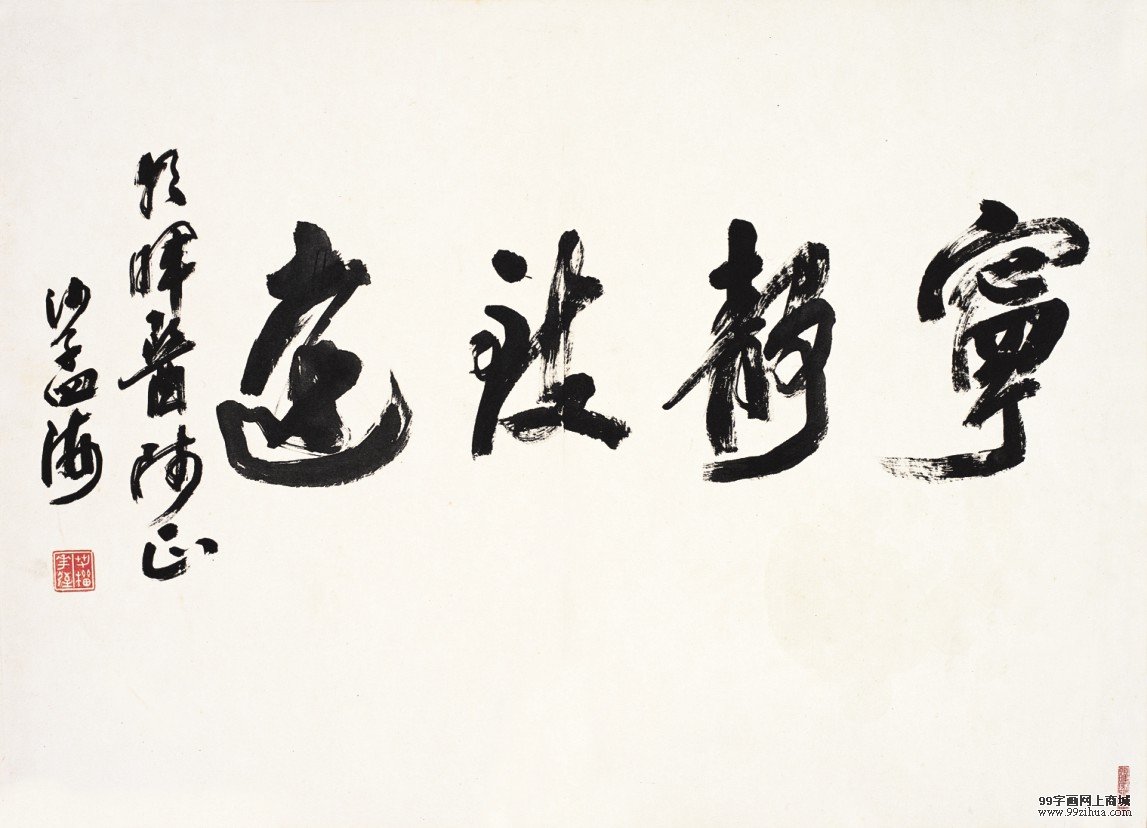 寧靜致遠
暉醫師正
沙孟海
99字画网上商城
www.99zihua.com